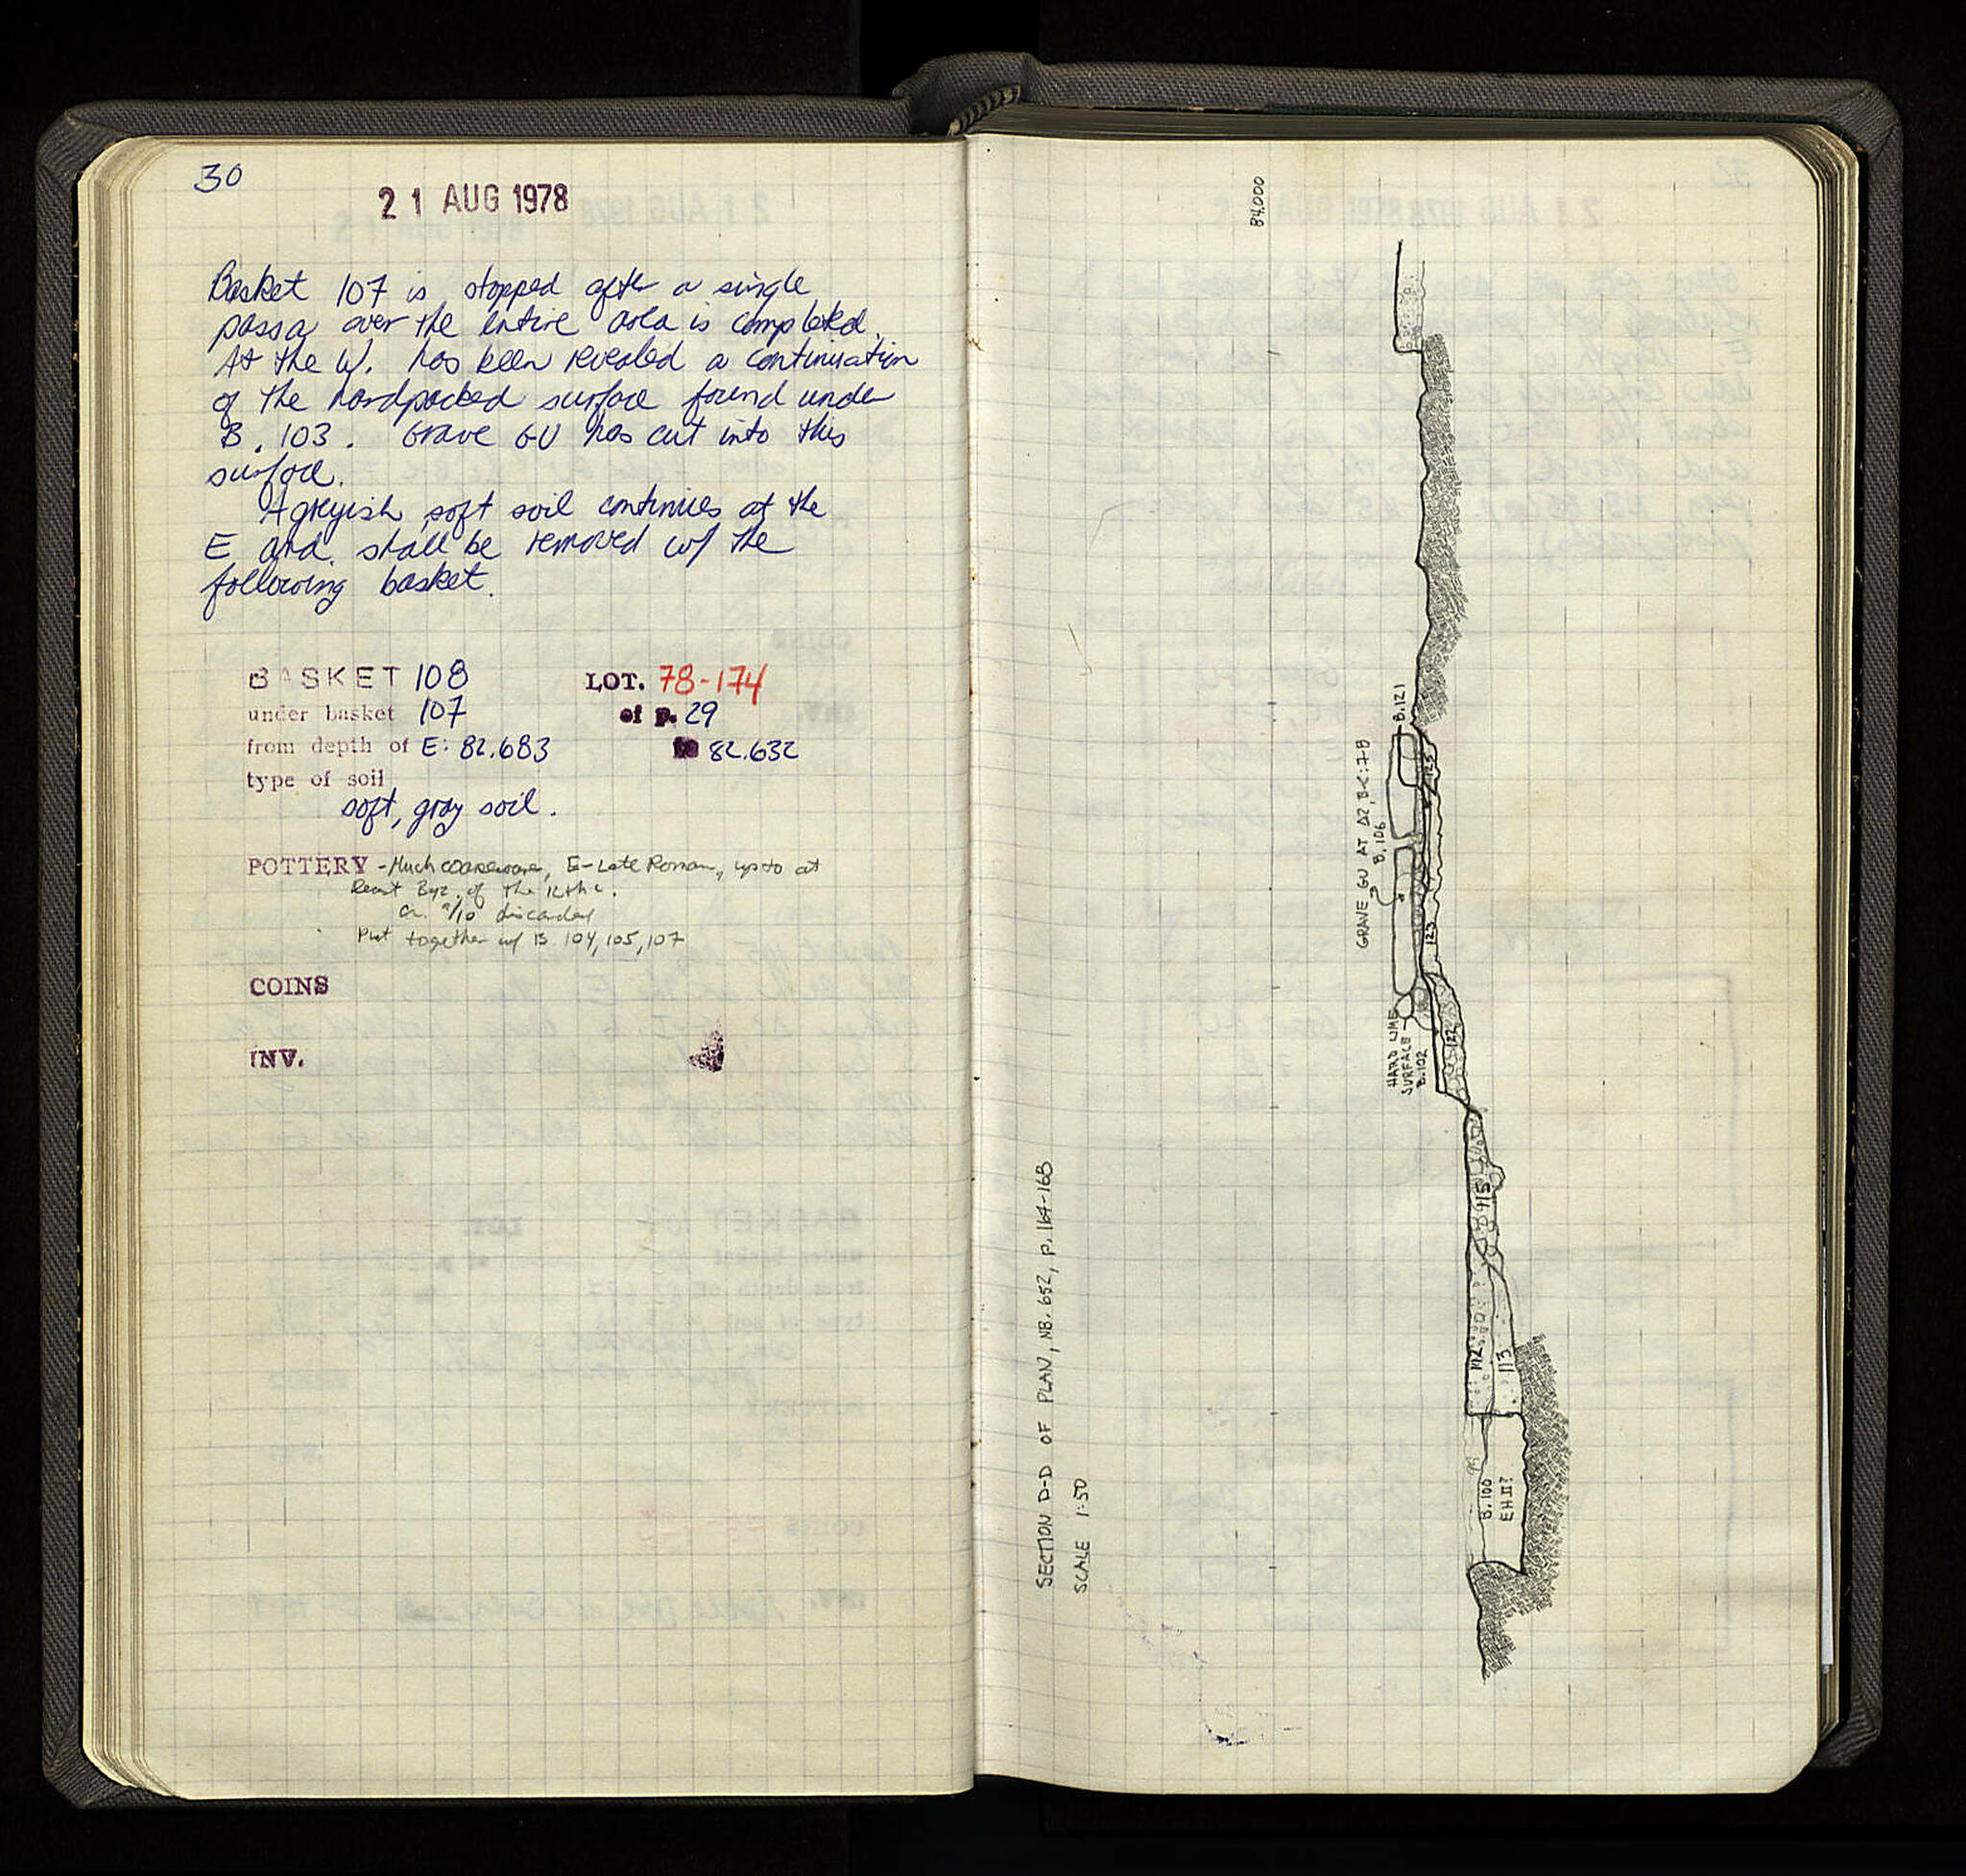 30
21 AUG 1978
Basket 107 is stopped after a single
passa over the entire area is completed.
At the W. has been revealed a continuation
of the hardpacked surface found under
B. 103. Grave GU has cut into this
surface.
A greyish soft soil continues at the
E and shall be removed w/ the
following basket.
BASKET 108 LOT. 78-174
under basket 107 of p. 29
from depth of E: 82.683 to 82.632
type of soil
soft, gray soil.
POTTERY - Much coarseware, E-Late Roman, up to at
least Byz. of the 12th c.
ca. 9/10 discarded
Put together w/ B. 104, 105, 107
COINS
INV.
84.000
B.121
GRAVE GU AT Δ2, B-C:7-8
B.106
125
123
HARD LIME
SURFACE
B.102
122
SECTION D-D OF PLAN, NB. 652, p. 164-168
SCALE 1:50
115
112
113
B.100
EH II?